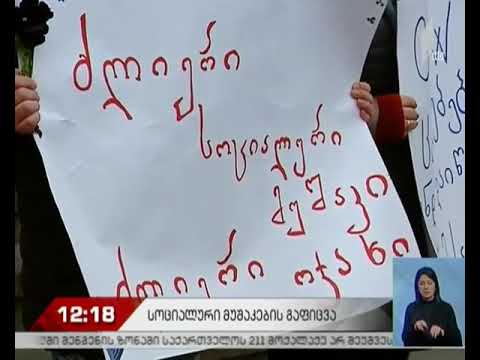 ძლიერი
სოციალური
მუშაკი
ძლიერი ოჯახი
12:18
ᲡᲝᲪᲘᲐᲚᲣᲠᲘ ᲛᲣᲨᲐᲙᲔᲑᲘᲡ ᲒᲐᲤᲘᲪᲕᲐ
ᲨᲔᲜᲒᲔᲜᲘᲡ ᲖᲝᲜᲐᲨᲘ ᲡᲐᲥᲐᲠᲗᲕᲔᲚᲝᲡ 211 ᲛᲝᲥᲐᲚᲐᲥᲔ ᲐᲠ ᲨᲔᲣᲨᲕᲔᲡ